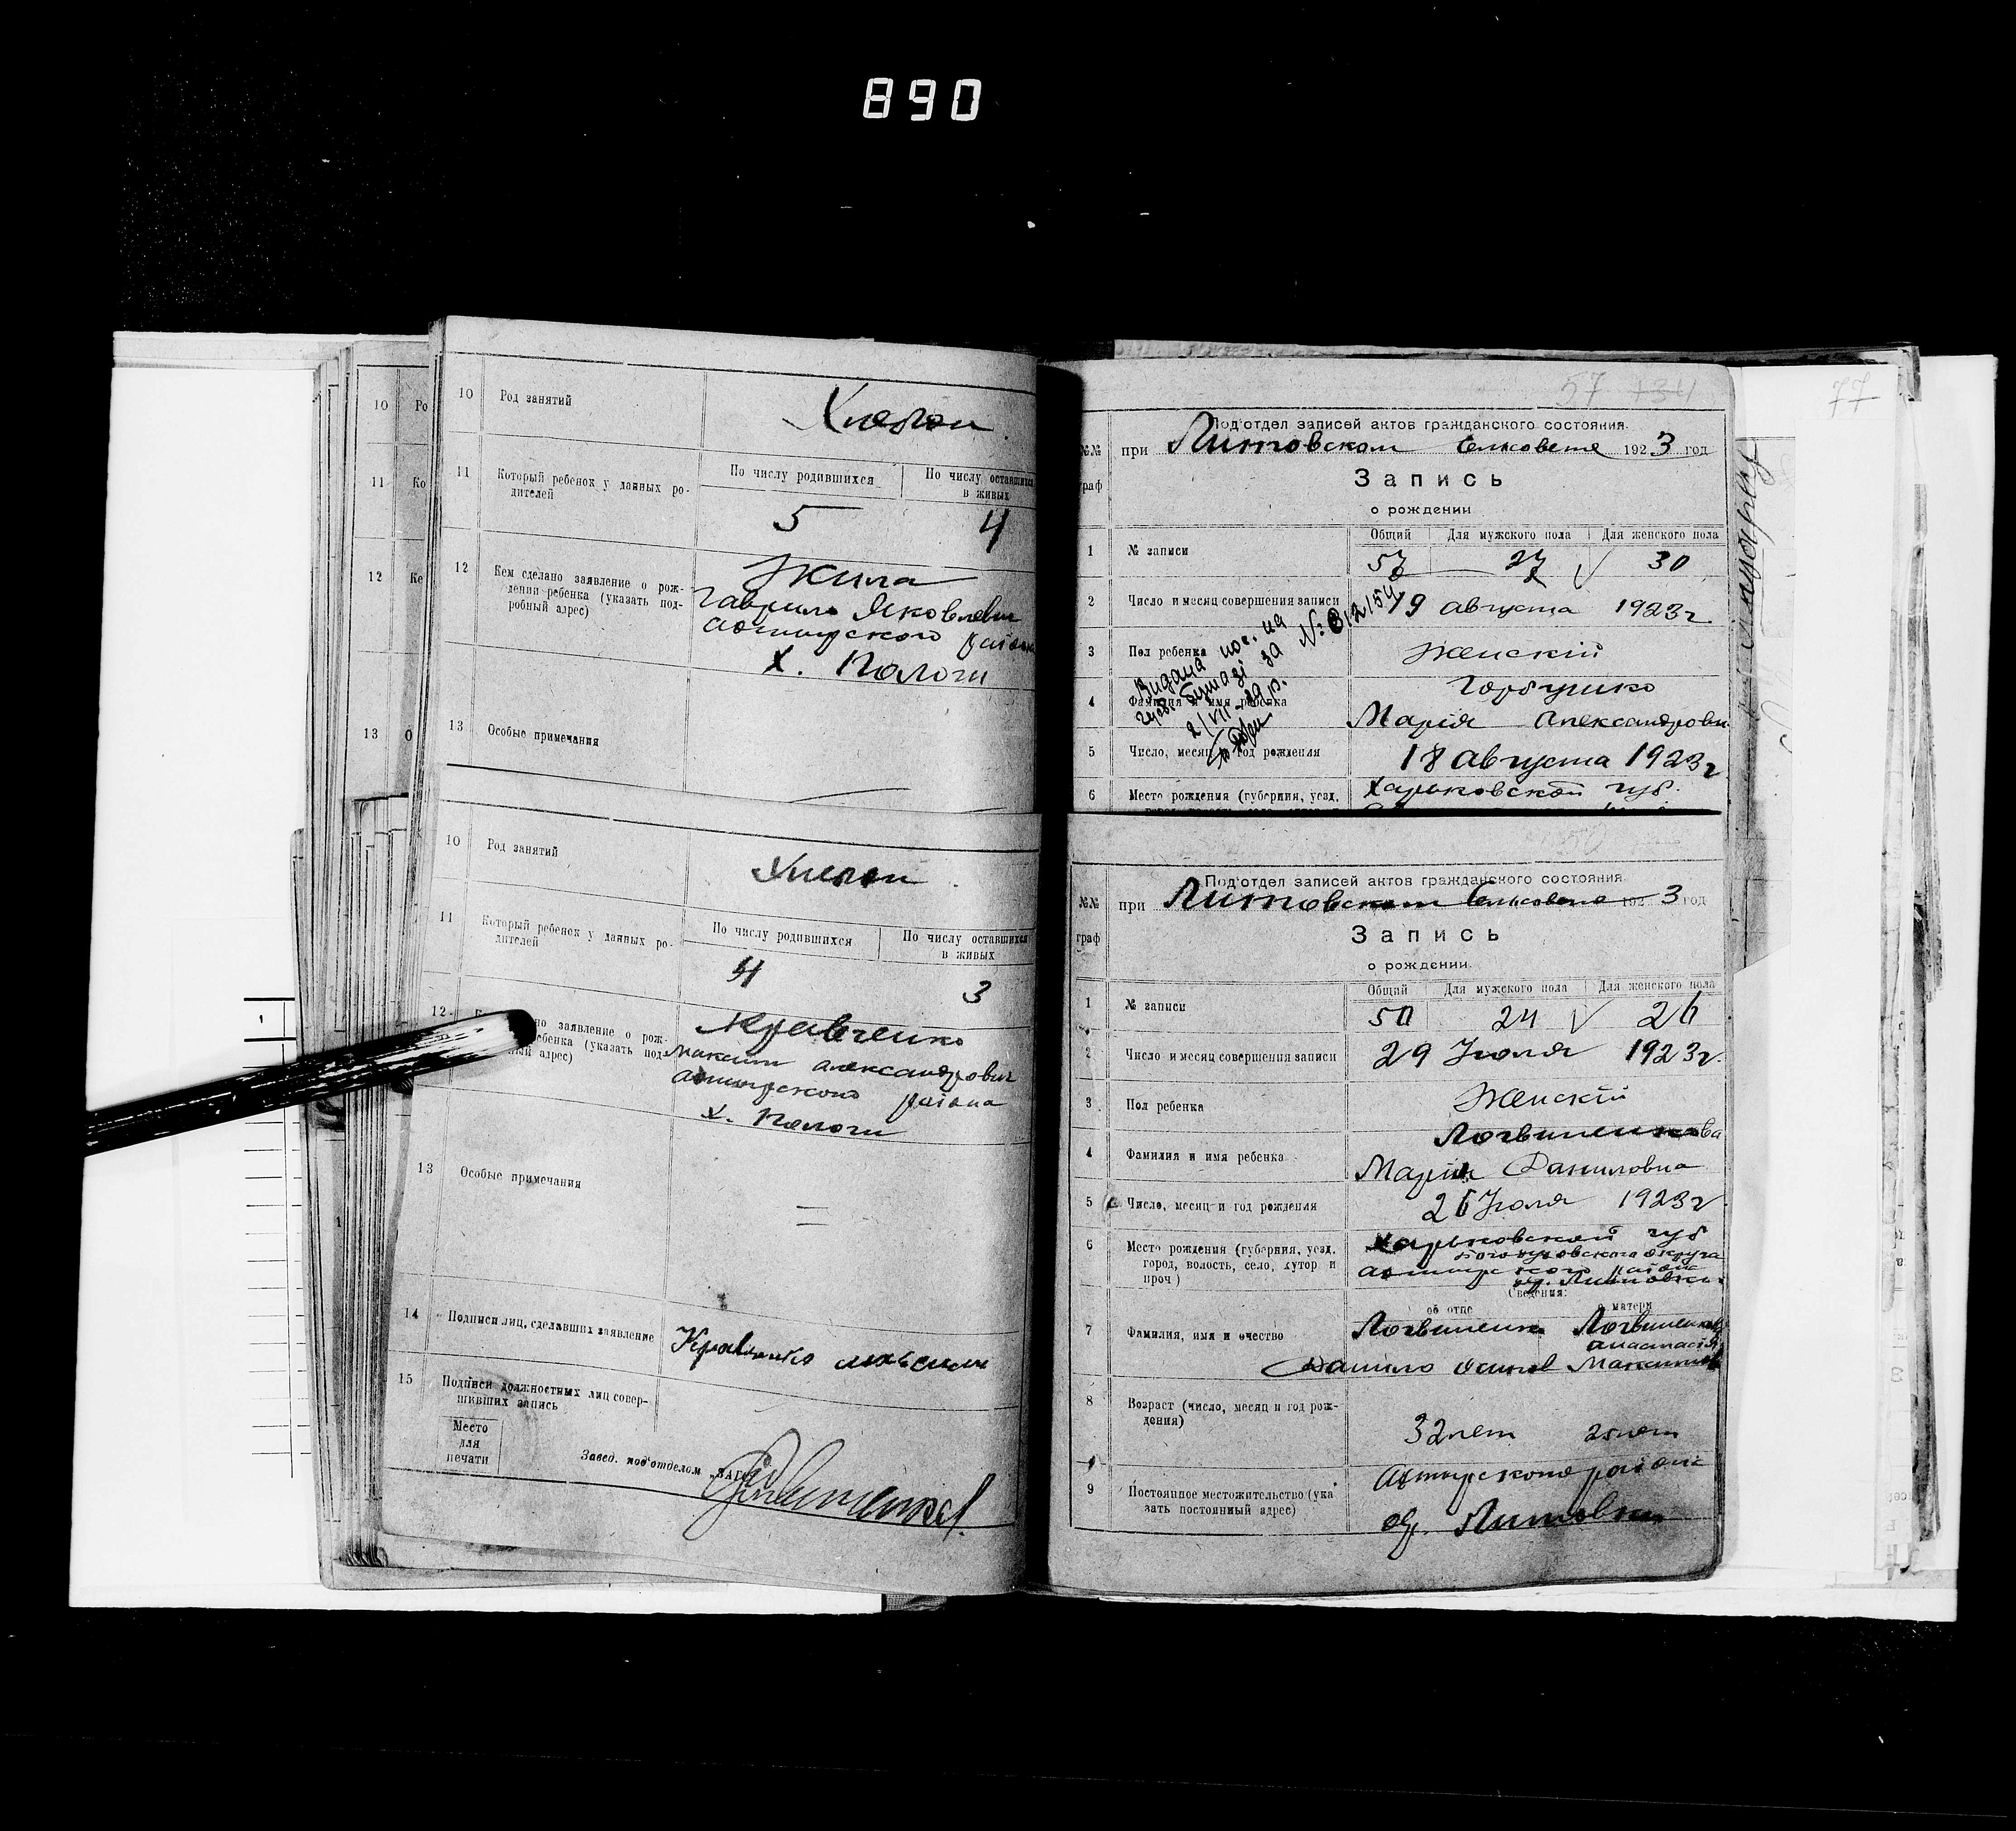 890
10 Род занятий Хлебоп.
11 Который ребенок у данных ро-
дителей
По числу родившихся По числу оставшихся
в живых
5 4
12 Кем сделано заявление о рож-
дении ребенка (указать под-
робный адрес)
Жила
Гаврило Яковлевич
Ахтирского района
х. Пологи
13 Особые примечания
10 Род занятий Хлебоп.
11 Который ребенок у данных ро-
дителей
По числу родившихся По числу оставшихся
в живых
4 3
12 заявление о рож-
ребенка (указать под-
адрес)
Кравченко
Максим Александрович
Ахтирского района
х. Пологи
13 Особые примечания
=
14 Подписи лиц, сделавших заявление Кравченко
15 Подписи должностных лиц совер-
шивших запись
Место
для
печати
Завед. под'отделом „ЗАГС"
10 Ро
11 Ко
12 Ке
13 О
57 134
Под'отдел записей актов гражданского состояния.
№№ граф
при Литовском Сельсовете 1923 год
Запись
о рождении
Общий Для мужского пола Для женского пола
1 № записи 57 27 √ 30
2 Число и месяц совершения записи 19 августа 1923г.
3 Пол ребенка Женскій
4 Фамилия и имя ребенка
Горбушко
Марія Александровн
Видана пос. на
за №
2/VII-29р.
5 Число, месяц и год рождения 18 августа 1923г
6 Место рождения (губерния, уезд, Харьковской губ.
50
Под'отдел записей актов гражданского состояния.
№№ граф
при Литовском Сельсовете 1923 год
Запись
о рождении.
Общий Для мужского пола Для женского пола
1 № записи 50 24 √ 26
2 Число и месяц совершения записи 29 Июля 1923г.
3 Пол ребенка Женскій
4 Фамилия и имя ребенка
Логвиненкова
Марія Даниловна
5 Число, месяц и год рождения 26 Июля 1923г
6 Место рождения (губерния, уезд,
город, волость, село, хутор и
проч)
Харьковской губ
Богодуховского округа
Ахтирского района
Литовки
Сведения:
об отце о матери
7 Фамилия, имя и очество
Логвиненко Логвиненков
Анастасія
Данило Осипов Максимов
8 Возраст (число, месяц и год рож-
дения)
32 лет 25 лет
9 Постоянное местожительство (ука
зать постоянный адрес)
Ахтирского района
Литовки
77